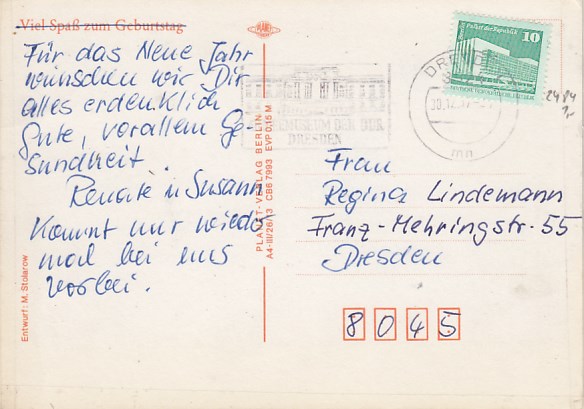 Viel Spaß zum Geburtstag
Für das Neue Jahr
wünschen wir Dir
alles erdenklich
Gute, vorallem Ge-
sundheit.
Renate u Susann
Kommt nur wieder
mal bei uns
vorbei.
Entwurf: M. Stolarow
PLANET
PLANET-VERLAG BERLIN
A4-III/26/13 CB6 7993 EVP 0,15 M
DER DDR
DRESDEN
DRESDEN
mn
Palast der Republik
10
2484
Frau
Regina Lindemann
Franz-Mehringstr-55
Dresden
8045